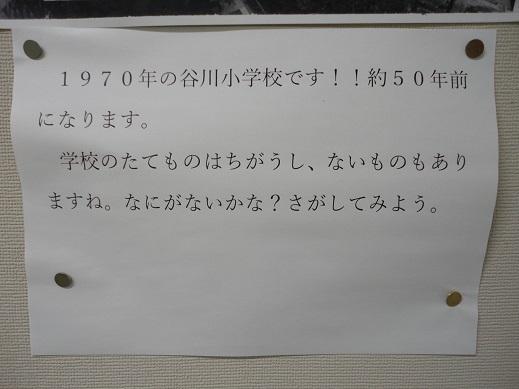 １９７０年の谷川小学校です！！約５０年前
になります。
学校のたてものはちがうし、ないものもあり
ますね。なにがないかな？さがしてみよう。